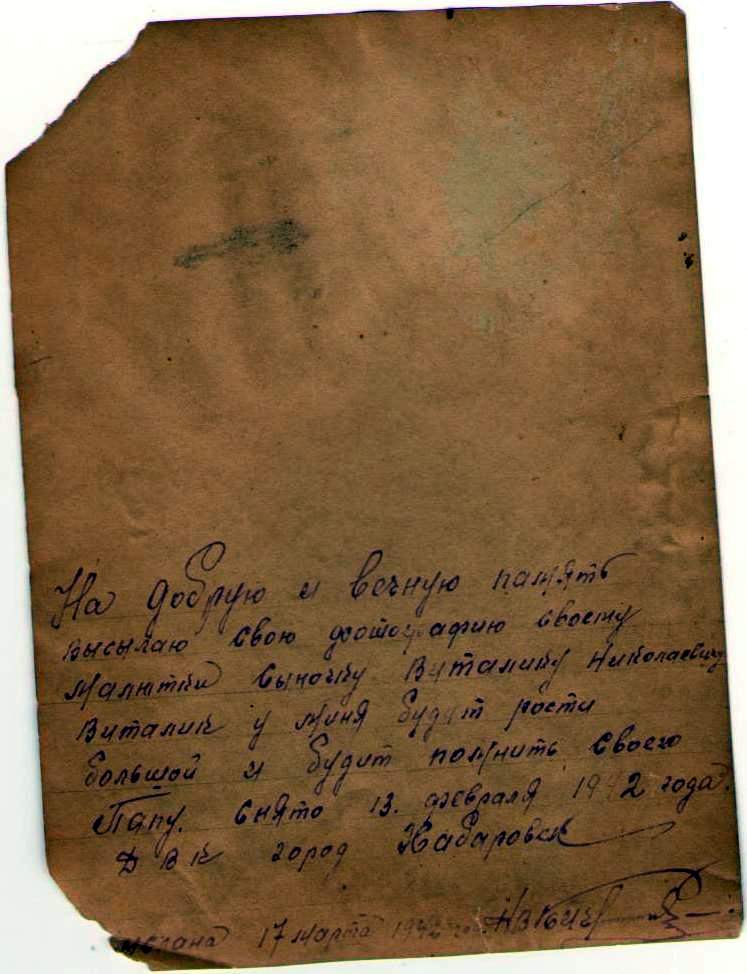 На добрую и вечную память
высылаю свою фотографию своему
малютки сыночку Виталику Николаевичу
Виталик у миня будит рости
большой и будит помнить своего
Папу. Снято 13. февраля 1942 года.
ДВК город Хабаровск
17 марта 1942